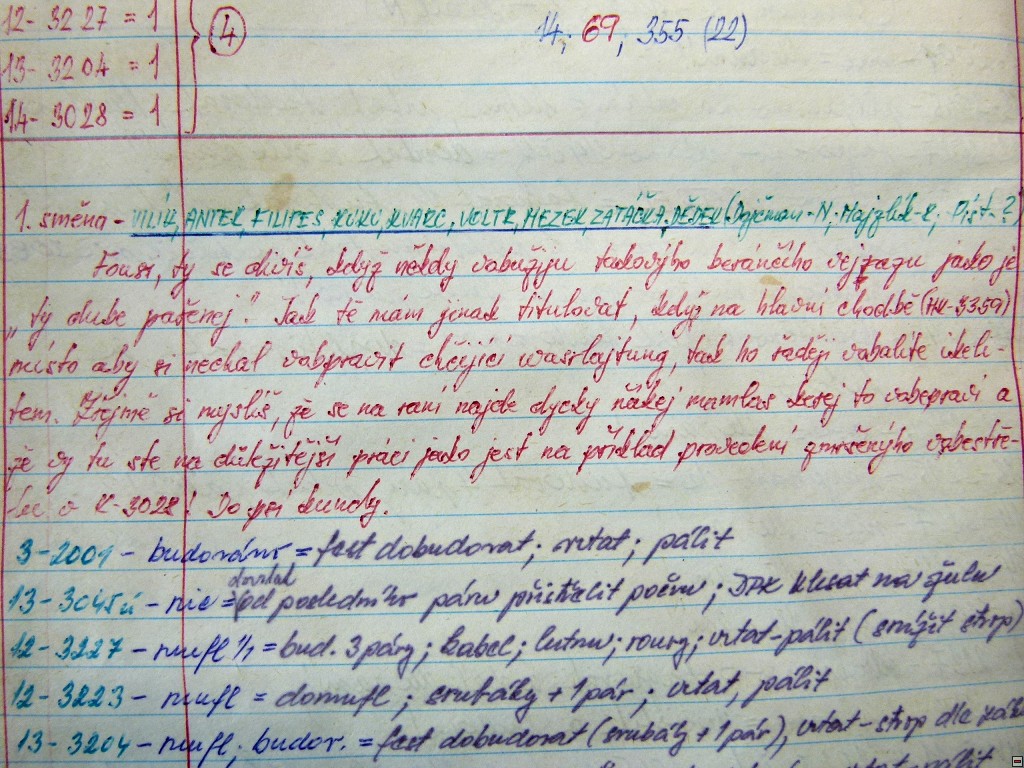 12-3227 = 1
13-3204 = 1
14-3028 = 1
4
14; 69; 355 (22)
1. směna - VILÍK, ANTEK, FILIPES, KUKU, KVARC, VOLTR, MEZEK, ZATÁČKA, DĚDEK (Dojčman-N; Majzlík-R; Pišt-?)
Fousi, ty se divíš, když někdy vobužiju takovýho beráncího vejrazu jako je
„ty dube prašenej". Jak tě mám jinak titulovat, když na hlavní chodbě (HK-3359)
místo aby si nechal vobpravit chčející wasrlajtung, tak ho raději vobalíte
tem. Zřejmě si myslíš, že se na raní najde dycky ňákej mamlas kerej to vobspraví a
že vy tu ste na důležitější práci jako jest na příklad provedení zmršenýho
K-3028! Do psí kundy.
3-2001 - budováno = fest dobudovat; vrtat; pálit
dovrtat
13-3045ú - nic = od posledního páru přistřelit počvu; DPK klesat na žulu
12-3227 - mufl 1/1 = bud. 3 páry; kabel; lutnu; roury; vrtat-pálit (snížit strop)
12-3223 - mufl = domufl; srubáky + 1 pár; vrtat, pálit
13-3204 - mufl; budov. = fest dobudovat (srubáky + 1 pár), vrtat-strop dle
vrtat pálit